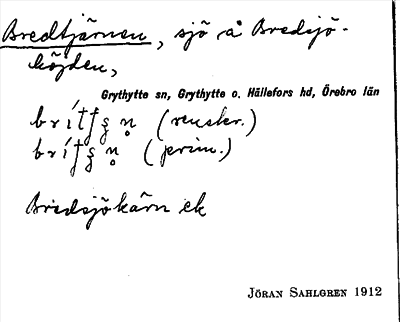 Bredtjärnen, sjö å Bredsjö-
höjden,
Grythytte sn, Grythytte o. Hällefors hd, Örebro län
(renskr.)
(prim.)
Bredsjökärn ek
JÖRAN SAHLGREN 1912